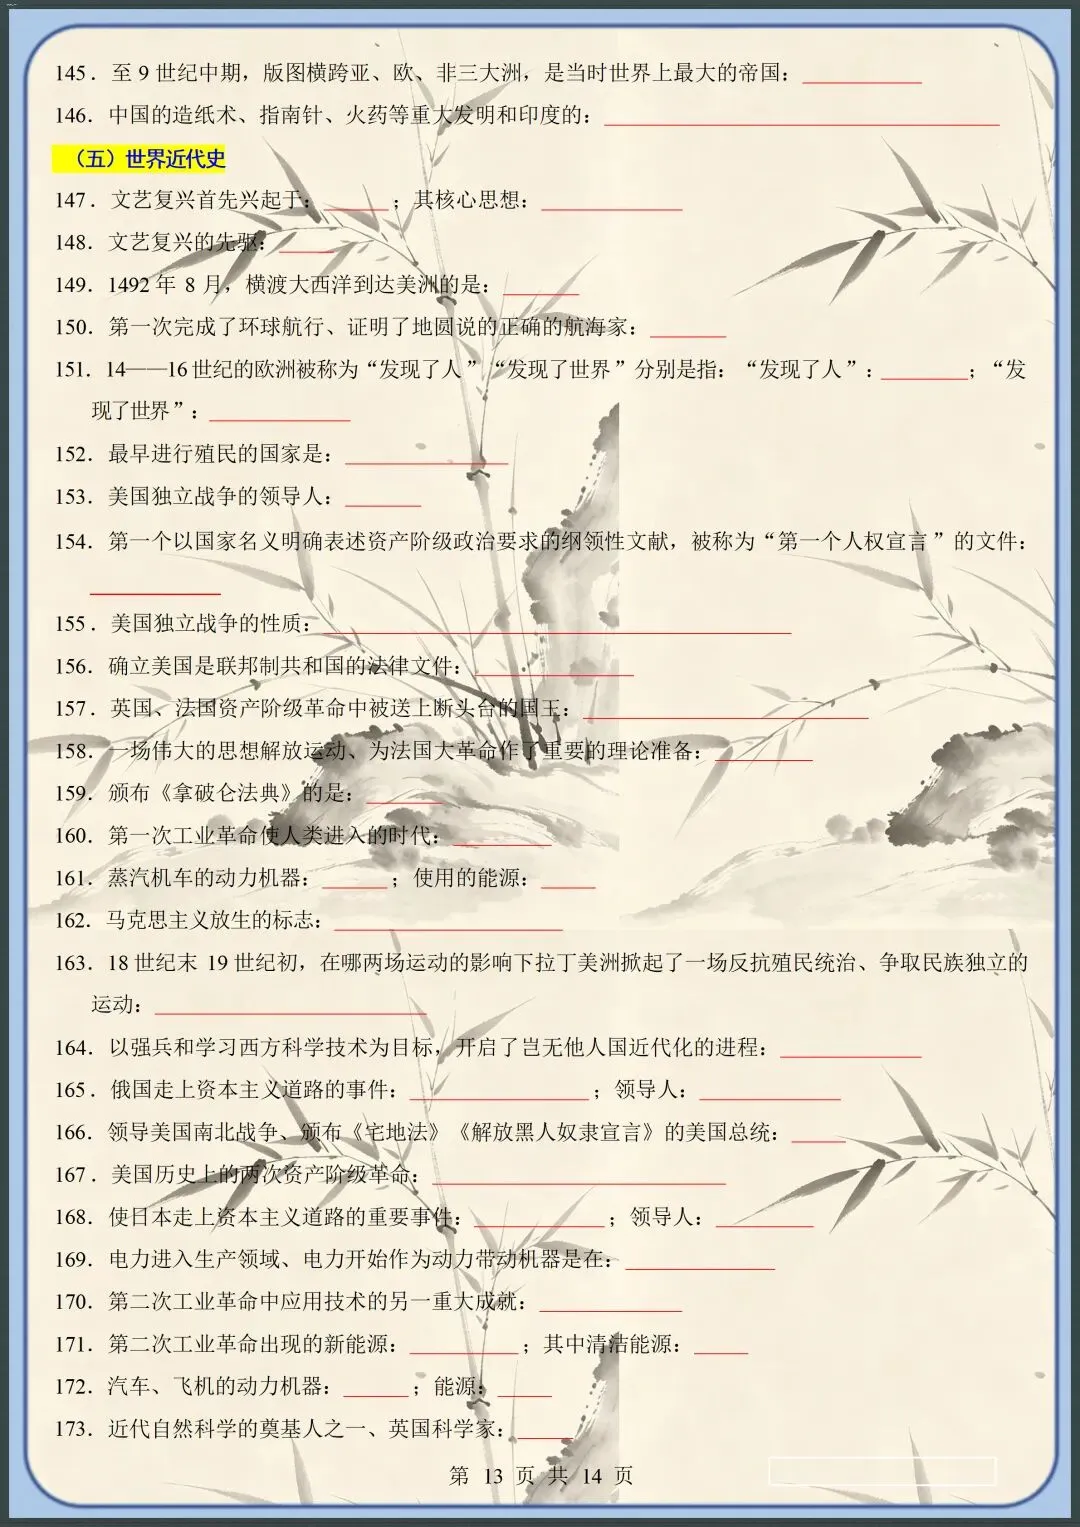 145．至 9 世纪中期，版图横跨亚、欧、非三大洲，是当时世界上最大的帝国：
146．中国的造纸术、指南针、火药等重大发明和印度的：
（五）世界近代史
147．文艺复兴首先兴起于：；其核心思想：
148．文艺复兴的先驱：
149．1492 年 8 月，横渡大西洋到达美洲的是：
150．第一次完成了环球航行、证明了地圆说的正确的航海家：
151．14——16 世纪的欧洲被称为“发现了人”“发现了世界”分别是指：“发现了人”：；“发
现了世界”：
152．最早进行殖民的国家是：
153．美国独立战争的领导人：
154．第一个以国家名义明确表述资产阶级政治要求的纲领性文献，被称为“第一个人权宣言”的文件：
155．美国独立战争的性质：
156．确立美国是联邦制共和国的法律文件：
157．英国、法国资产阶级革命中被送上断头台的国王：
158．一场伟大的思想解放运动、为法国大革命作了重要的理论准备：
159．颁布《拿破仑法典》的是：
160．第一次工业革命使人类进入的时代：
161．蒸汽机车的动力机器：；使用的能源：
162．马克思主义放生的标志：
163．18 世纪末 19 世纪初，在哪两场运动的影响下拉丁美洲掀起了一场反抗殖民统治、争取民族独立的
运动：
164．以强兵和学习西方科学技术为目标，开启了岂无他人国近代化的进程：
165．俄国走上资本主义道路的事件：；领导人：
166．领导美国南北战争、颁布《宅地法》《解放黑人奴隶宣言》的美国总统：
167．美国历史上的两次资产阶级革命：
168．使日本走上资本主义道路的重要事件：；领导人：
169．电力进入生产领域、电力开始作为动力带动机器是在：
170．第二次工业革命中应用技术的另一重大成就：
171．第二次工业革命出现的新能源：；其中清洁能源：
172．汽车、飞机的动力机器：；能源：
173．近代自然科学的奠基人之一、英国科学家：
第 13 页 共 14 页